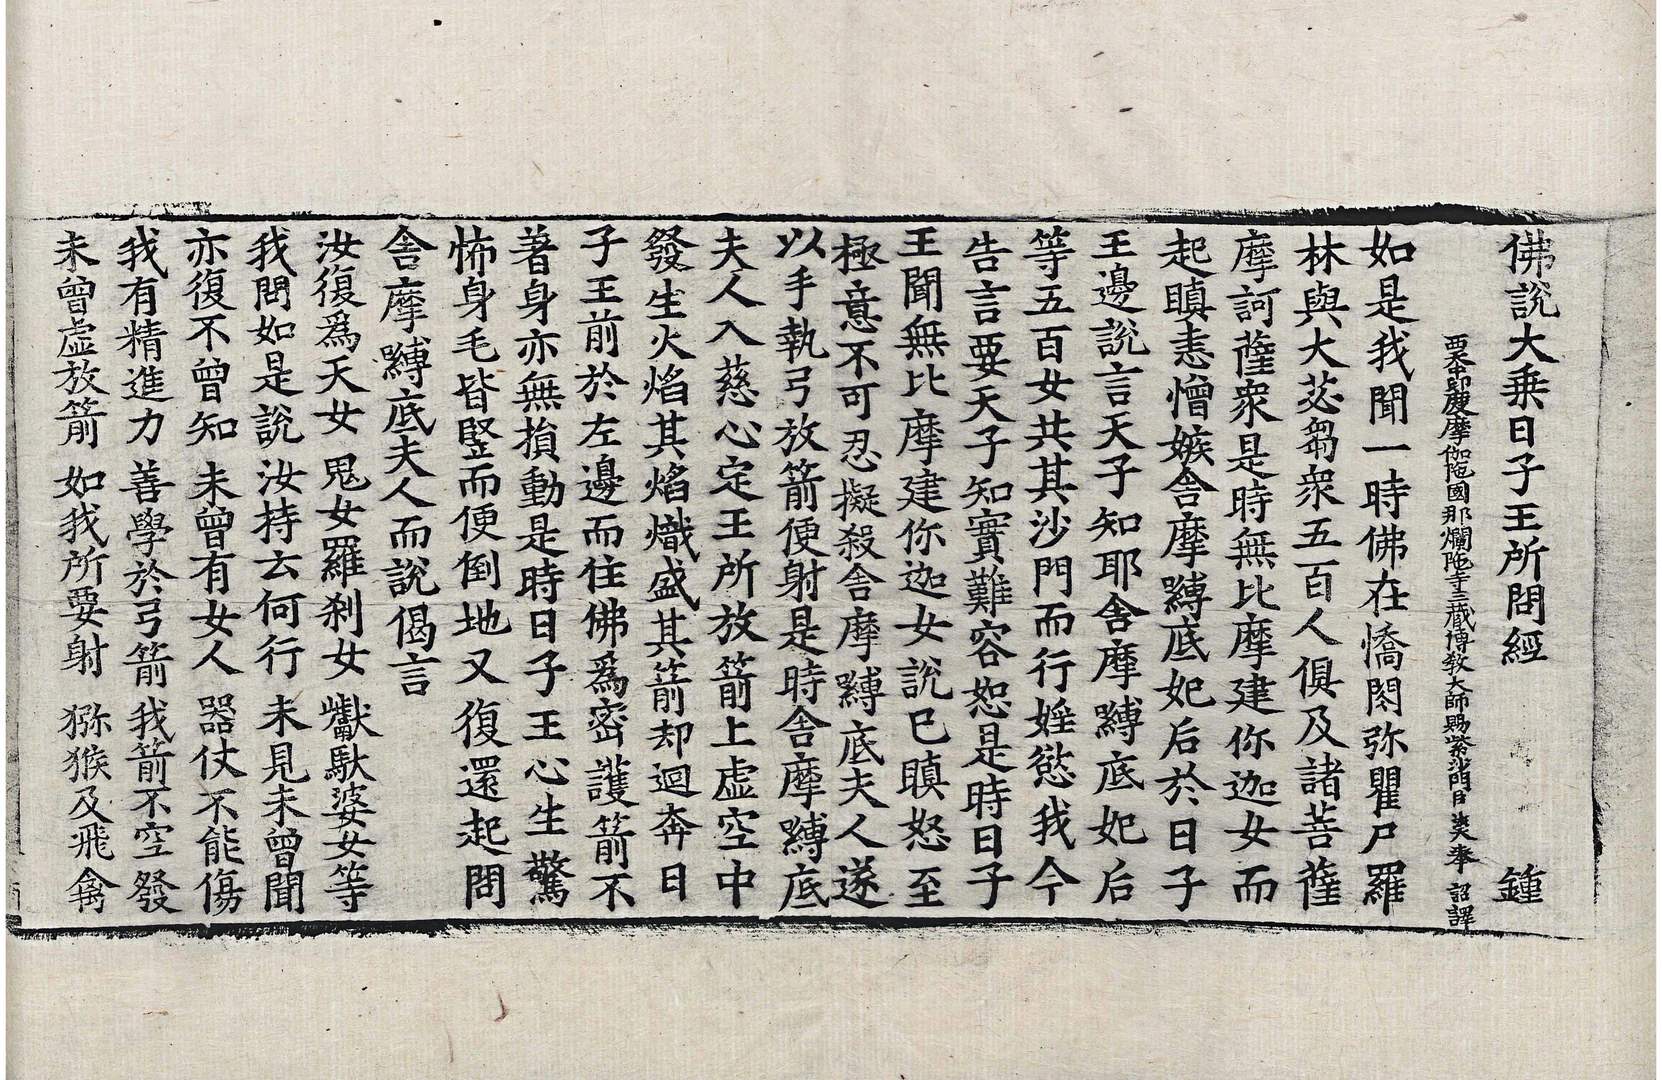 佛説大乗日子王所問經 鍾
西天中印度摩伽陁國那爛陁寺三藏傳教大師賜紫沙門臣法天奉 詔譯
如是我聞一時佛在憍閃弥瞿尸羅
林與大苾芻衆五百人俱及諸菩薩
摩訶薩衆是時無比摩建你迦女而
起瞋恚憎嫉舎摩嚩底妃后於日子
王邊説言天子知耶舎摩嚩底妃后
等五百女共其沙門而行婬慾我今
告言要天子知實難容恕是時日子
王聞無比摩建你迦女説已瞋怒至
極意不可忍擬殺舎摩嚩底夫人遂
以手執弓放箭便射是時舎摩嚩底
夫人入慈心定王所放箭上虚空中
發生火焰其焰熾盛其箭却迴奔日
子王前於左邊而住佛爲密護箭不
著身亦無損動是時日子王心生驚
怖身毛皆竪而便倒地又復還起問
舎摩嚩底夫人而説偈言
汝復爲天女 鬼女羅刹女 巘馱婆女等
我問如是説 汝持去何行 未見未曾聞
亦復不曾知 未曾有女人 器仗不能傷
我有精進力 善學於弓箭 我箭不空發
未曾虚放箭 如我所要射 獼猴及飛禽